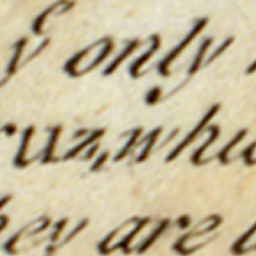 yᵉ only
ruz, whi
hey are